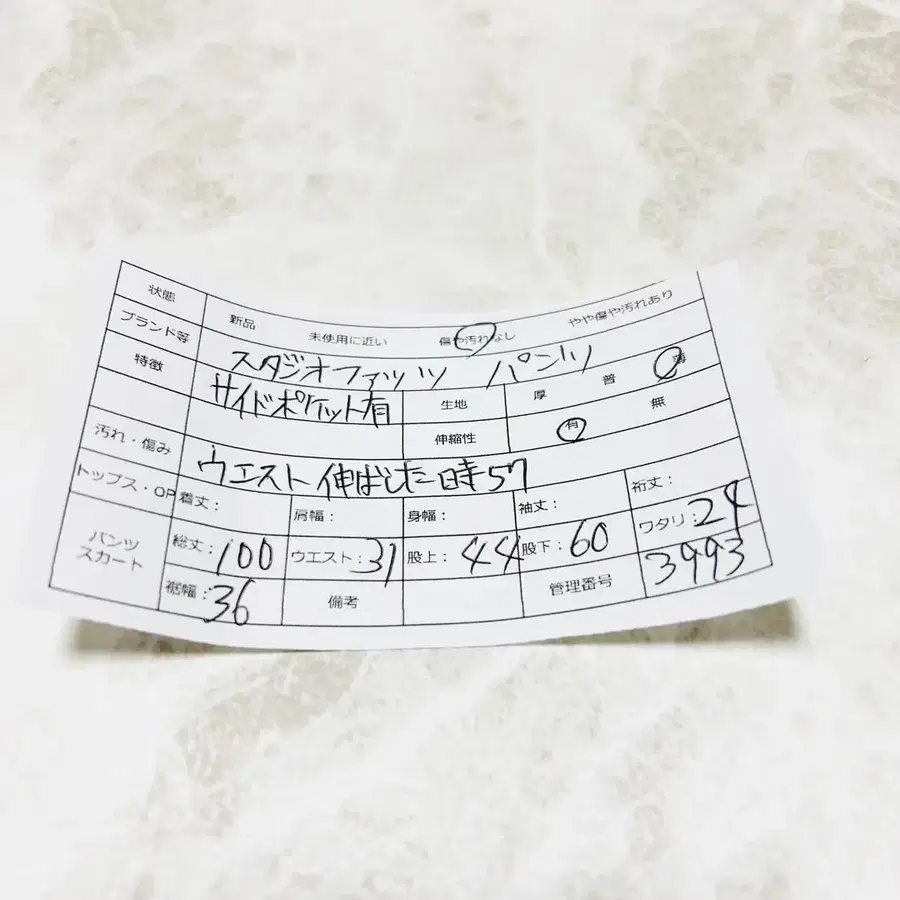 状態 新品 未使用に近い 傷や汚れなし やや傷や汚れあり
ブランド等 スタジオファッツ パンツ
特徴 サイドポケット有 生地 厚 普 薄
伸縮性 有 無
汚れ・傷み ウエスト伸ばした時57
トップス・OP 着丈: 肩幅: 身幅: 袖丈: 裄丈:
パンツ スカート 総丈:100 ウエスト:31 股上:44 股下:60 ワタリ:24
裾幅:36 備考 管理番号 3993